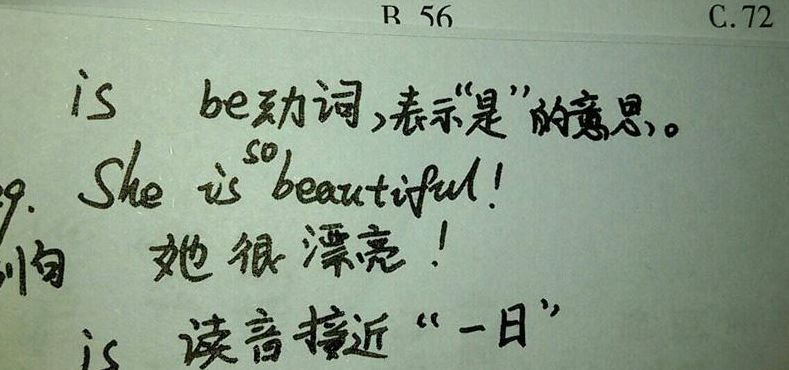 B 56 C. 72
is be动词,表示“是”的意思。
eg. She is so beautiful!
例句 她很漂亮!
is 读音接近“一日”